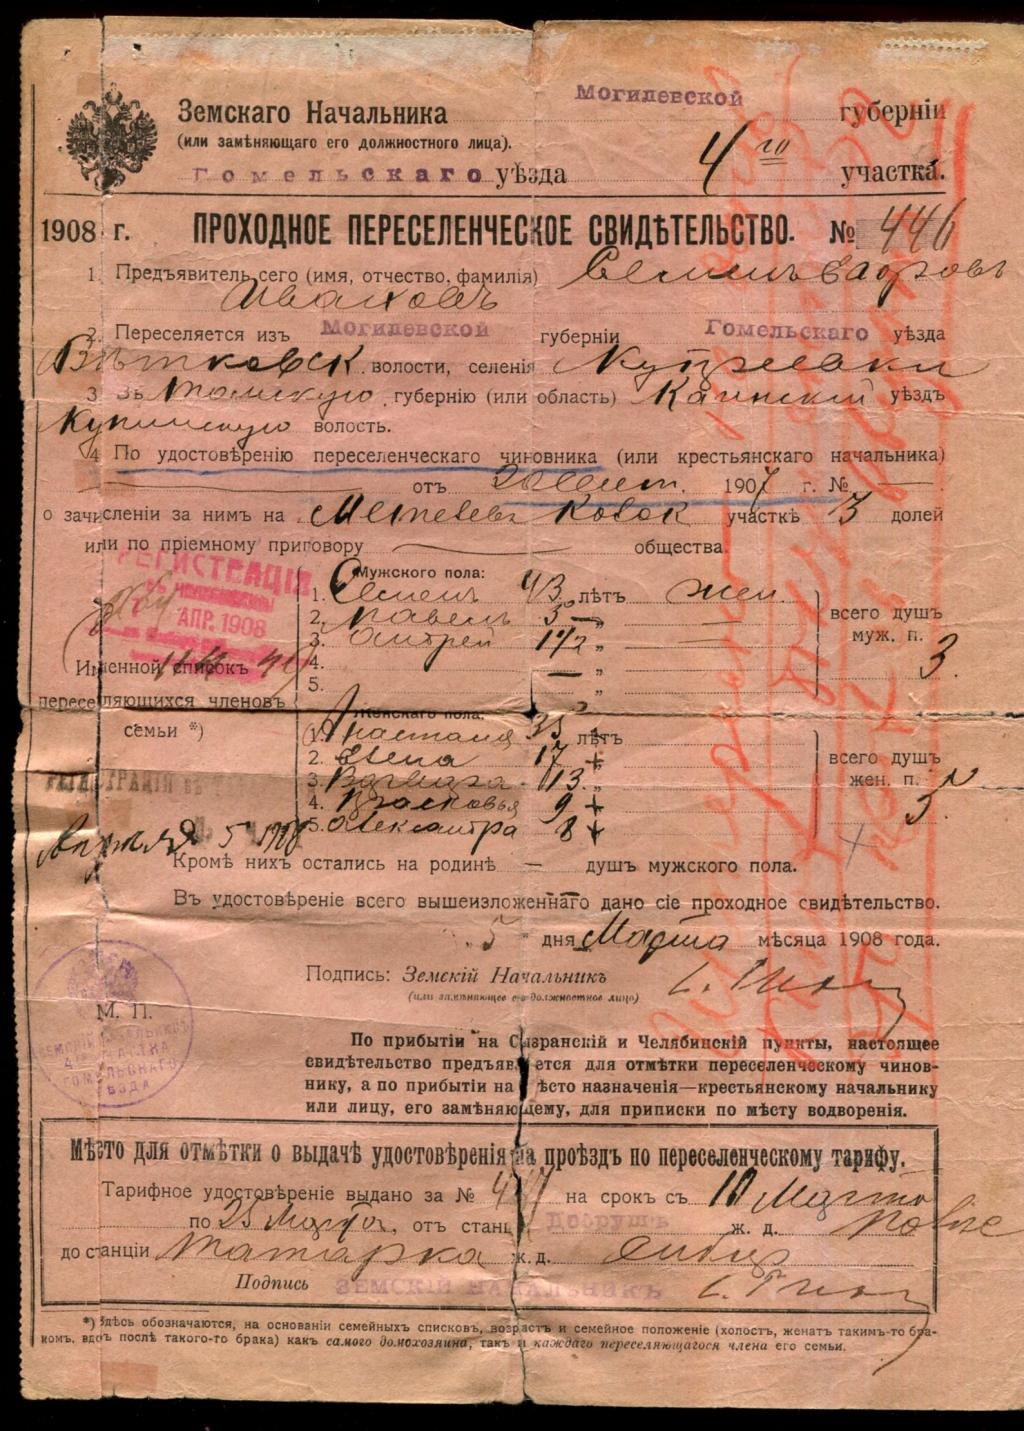 Земскаго Начальника
(или замѣняющаго его должностного лица).
Могилевской губерніи
Гомельскаго уѣзда 4го участка.
1908 г. ПРОХОДНОЕ ПЕРЕСЕЛЕНЧЕСКОЕ СВИДѢТЕЛЬСТВО. № 446
1. Предъявитель сего (имя, отчество, фамилія) Семенъ
Ивановъ
2. Переселяется изъ Могилевской губерніи Гомельскаго уѣзда
Вѣтковск волости, селенія
3. Въ Томскую губернію (или область) Каинскій уѣздъ
Купинскую волость.
4. По удостовѣренію переселенческаго чиновника (или крестьянскаго начальника)
отъ 1907 г. №
о зачисленіи за нимъ на участкѣ 3 долей
или по пріемному приговору общества.
РЕГИСТРАЦІЯ
АПР. 1908
Именной списокъ
переселяющихся членовъ
семьи *)
Мужского пола:
1. Семенъ 43 лѣтъ жен.
2. Павелъ 3 "
3. Андрей 1 1/2 "
4. — "
5. "
всего душъ
муж. п. 3.
Женскаго пола:
1. Анастасія 35 лѣтъ
2. Елена 17
3. 13.
4. Прасковья 9
5. Александра 8
всего душъ
жен. п. 5
РЕГИСТРАЦІИ ВЪ
5 1908
Кромѣ нихъ остались на родинѣ — душъ мужского пола.
Въ удостовѣреніе всего вышеизложеннаго дано сіе проходное свидѣтельство.
5 " дня Марта мѣсяца 1908 года.
Подпись: Земскій Начальникъ
(или замѣняющее его должностное лицо)
М. П.
ЗЕМСКІЙ НАЧАЛЬНИКЪ
4 УЧАСТКА
ГОМЕЛЬСКАГО
УѢЗДА
По прибытіи на Сызранскій и Челябинскій пункты, настоящее
свидѣтельство предъявляется для отмѣтки переселенческому чинов-
нику, а по прибытіи на мѣсто назначенія—крестьянскому начальнику
или лицу, его замѣняющему, для приписки по мѣсту водворенія.
Мѣсто для отмѣтки о выдачѣ удостовѣренія на проѣздъ по переселенческому тарифу.
Тарифное удостовѣреніе выдано за № на срокъ съ 10 Марта
по 25 Марта, отъ станц Добрушъ ж. д. Полѣс
до станціи Татарка ж.д. Сибир
Подпись ЗЕМСКІЙ НАЧАЛЬНИКЪ
*) Здѣсь обозначаются, на основаніи семейныхъ списковъ, возрастъ и семейное положеніе (холостъ, женатъ такимъ-то бра-
комъ, вдовъ послѣ такого-то брака) какъ самого домохозяина, такъ и каждаго переселяющагося члена его семьи.